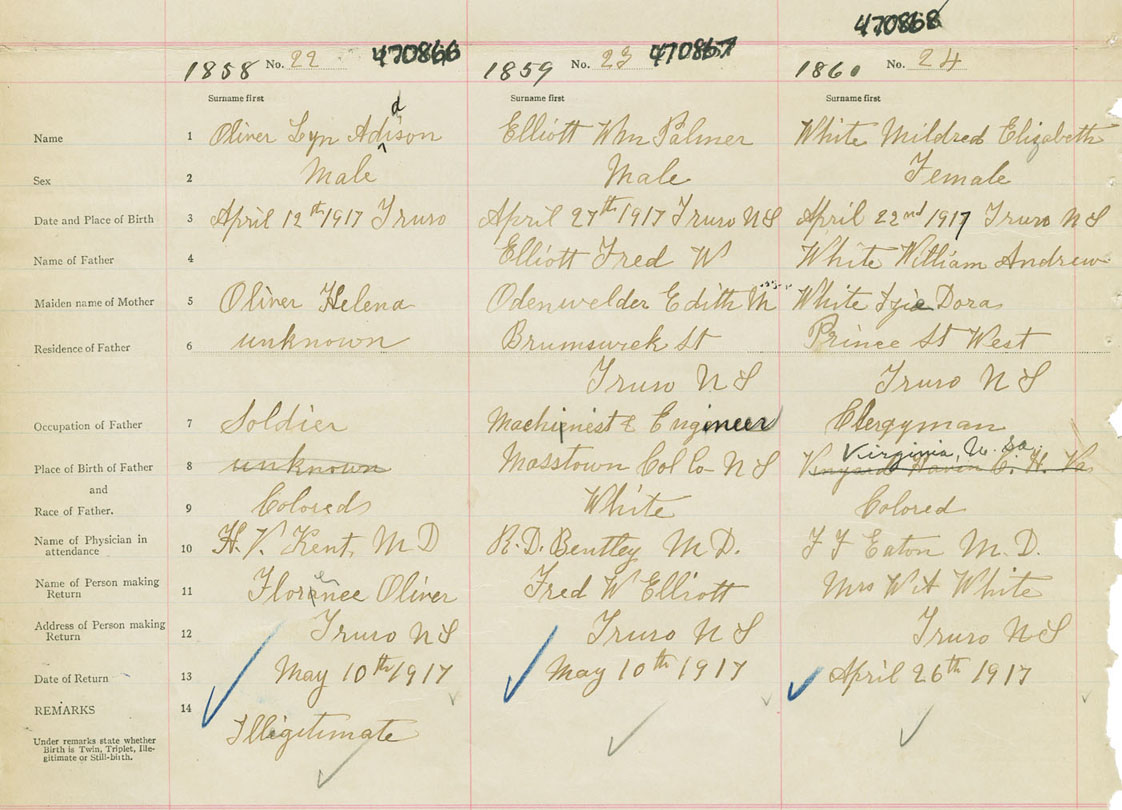 470868
1858 No. 22 470866 1859 No. 23 470867 1860 No. 24
Surname first Surname first Surname first
Name 1 Oliver Lyn Addison Elliott Wm Palmer White Mildred Elizabeth
Sex 2 Male Male Female
Date and Place of Birth 3 April 12th 1917 Truro April 27th 1917 Truro N S April 22nd 1917 Truro N S
Name of Father 4 Elliott Fred W White William Andrew
Maiden name of Mother 5 Oliver Helena Odenwelder Edith M White Izie Dora
Residence of Father 6 unknown Brumswick St Prince St West
Truro N S Truro N S
Occupation of Father 7 Soldier Machinest & Engineer Clergyman
Virginia, U. Sa.
Place of Birth of Father 8 unknown Masstown Col Co N S C. H. Va
and
Race of Father. 9 Colored White Colored
Name of Physician in
attendance 10 H. V. Kent, M D R. D. Bentley M D. F F Eaton M. D.
Name of Person making
Return 11 Florence Oliver Fred W Elliott Mrs W A White
Address of Person making
Return 12 Truro N S Truro N S Truro N S
Date of Return 13 May 10th 1917 May 10th 1917 April 26th 1917
REMARKS 14
Illigitimate
Under remarks state whether
Birth is Twin, Triplet, Ille-
gitimate or Still-birth.